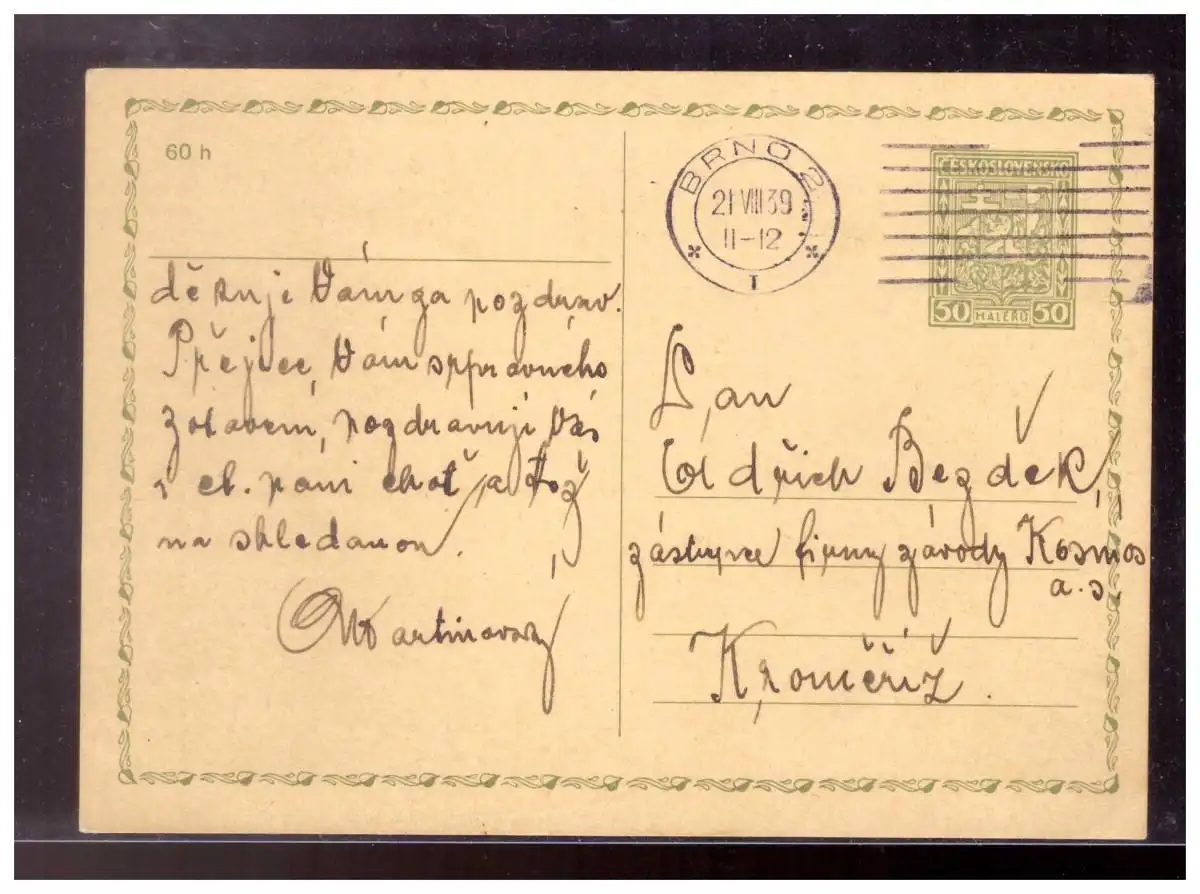 60 h
BRNO 2
21 VIII 39
11-12
1
ČESKOSLOVENSKO
50 HALÉŘŮ 50
děkuje Vám za pozdrav.
Přejeme Vám správného
zotavení, pozdravuji Vás
i ct. paní choť a
na shledanou.
Martinovský
Pan
Oldřich Bezděk,
zástupce firmy závody Kosmos
a.s.
Kroměříž.